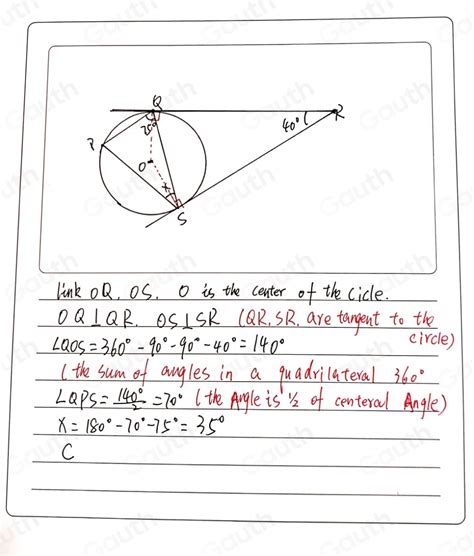 Q
75°
40°
R
P
O
x
S
link OQ, OS. O is the center of the cicle.
OQ⊥QR. OS⊥SR (QR, SR, are tangent to the circle)
∠QOS=360°-90°-90°-40°=140°
(the sum of angles in a quadrilateral 360°
∠QPS=140°/2=70° (the Angle is ½ of centeral Angle)
X=180°-70°-75°=35°
C
Gauth